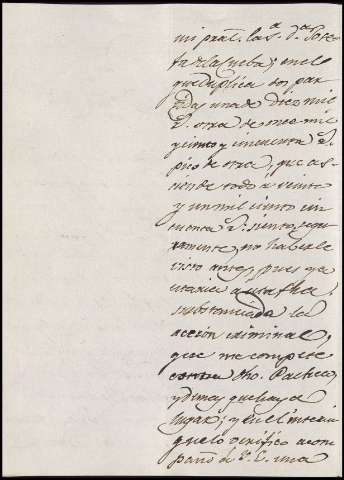 mi pral. las.ª d.ª Jose
ta dela cueba; en el
que duplica dos par
tidas una de diez mil
y otra de once mil
y ciento y cincuenta
pico de otra, que as-
ciende todo á veinte
y un mil ciento cin
cuenta siento, segu
ramente, no haberle
visto antes, pues ya
estaria á esta fha,
substanciada la
accion criminal,
que me compete
contra dho. Pacheco,
y demas que haya
lugar; y en el interin
que lo verifico acom
paño á V. E. una